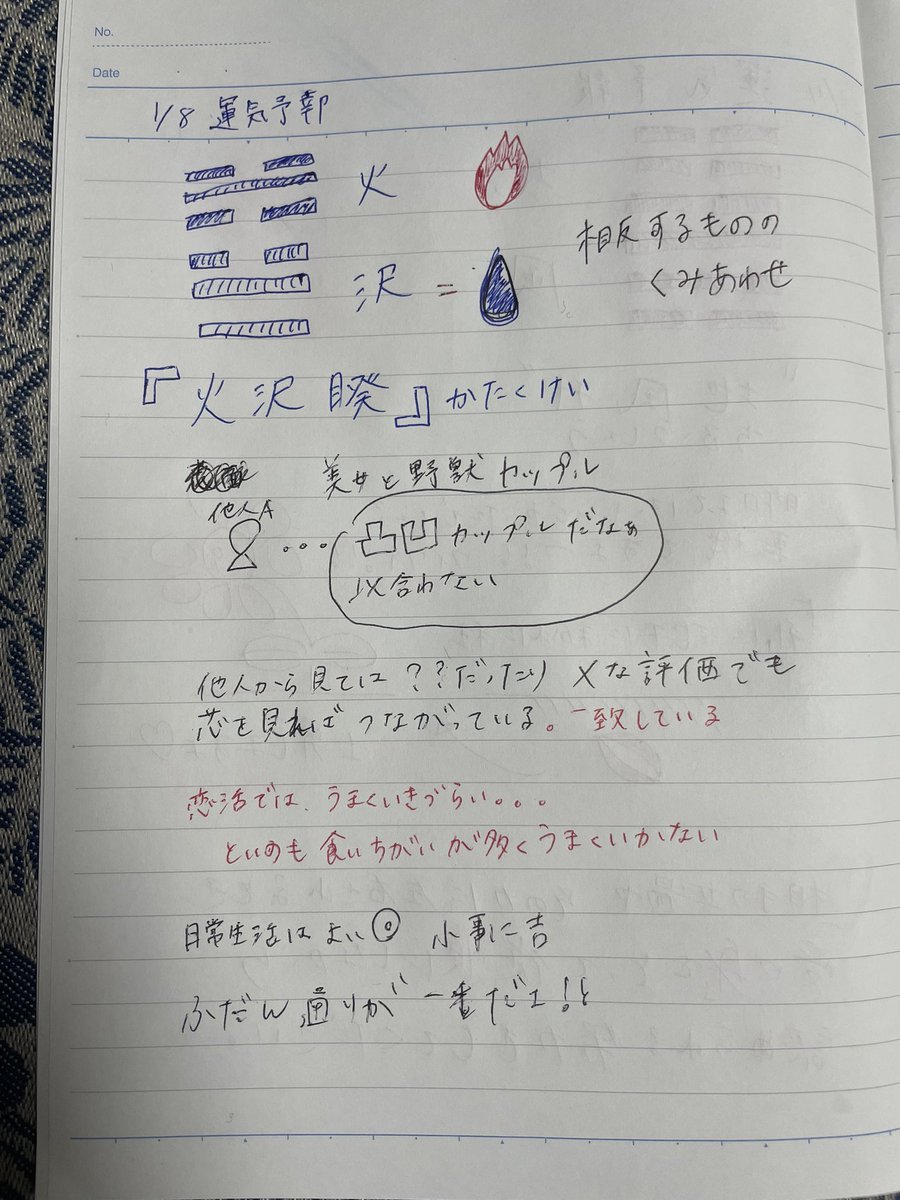 No.
Date
1/8 運気予報
火
沢 =
相反するものの
くみあわせ
『火沢睽』かたくけい
美女と野獣カップル
他人A
... 凸凹カップルだなぁ
以合わない
他人から見ては??だったり ×な評価でも
芯を見ればつながっている。一致している
恋活では、うまくいきづらい。。。
といのも食いちがいが多くうまくいかない
日常生活はよい◎ 小事に吉
ふだん通りが一番だヱ!と